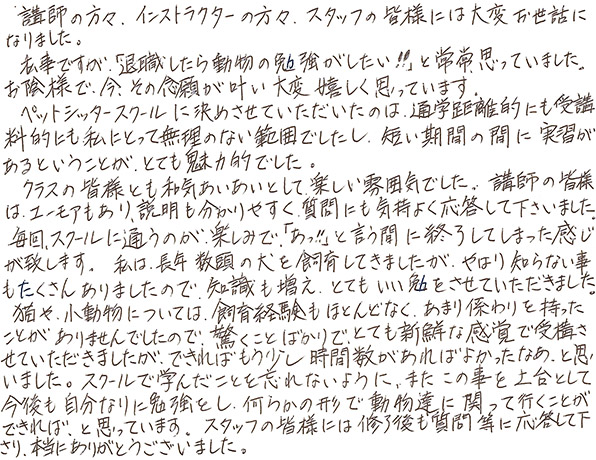 講師の方々、インストラクターの方々、スタッフの皆様には大変お世話に
なりました。
私事ですが、「退職したら動物の勉強がしたい!!」と常常思っていました。
お陰様で、今、その念願が叶い大変嬉しく思っています。
ペットシッタースクールに決めさせていただいたのは、通学距離的にも受講
料的にも私にとって無理のない範囲でしたし、短い期間の間に実習が
あるということが、とても魅力的でした。
クラスの皆様とも和気あいあいとして、楽しい雰囲気でした。講師の皆様
は、ユーモアもあり、説明も分かりやすく、質問にも気持よく応答して下さいました。
毎回、スクールに通うのが、楽しみで、「あっ!!」と言う間に終了してしまった感じ
が致します。私は、長年、数頭の犬を飼育してきましたが、やはり知らない事
もたくさんありましたので、知識も増え、とてもいい勉をさせていただきました。
猫や、小動物については、飼育経験もほとんどなく、あまり係わりを持った
ことがありませんでしたので、驚くことばかりで、とても新鮮な感覚で受講さ
せていただきましたが、できればもう少し時間数があればよかったなあ、と思
いました。スクールで学んだことを忘れないように、またこの事を土台として
今後も自分なりに勉強をし、何らかの形で動物達に関って行くことが
できれば、と思っています。スタッフの皆様には修了後も質問等に応答して下
さり、本当にありがとうございました。